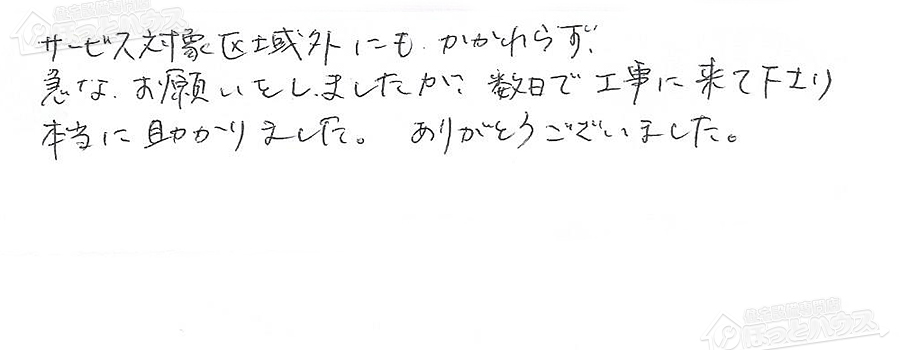 サービス対象区域外にもかかわらず、
急なお願いをしましたが、数日で工事に来て下さり
本当に助かりました。 ありがとうございました。
住宅設備専門店
ほっとハウス